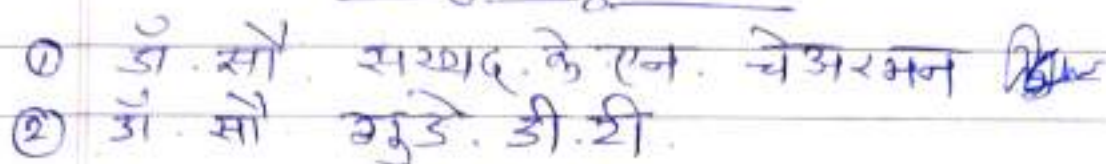 ① डॉ. सौ. सय्यद. के एन. चेअरमन
② डॉ. सौ. गुडे. डी. टी.